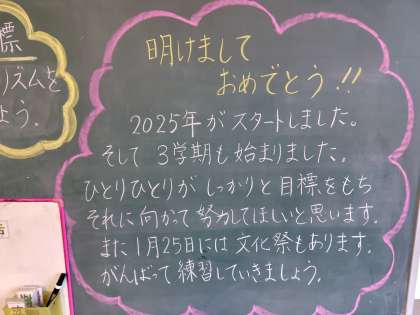 標
リズムを
ょう.
明けまして
おめでとう!!
2025年がスタートしました。
そして 3学期も始まりました.
ひとりひとりが しっかりと 目標をもち
それに向かって 努力してほしいと思います.
また 1月25日には 文化祭もあります.
がんばって 練習していきましょう.